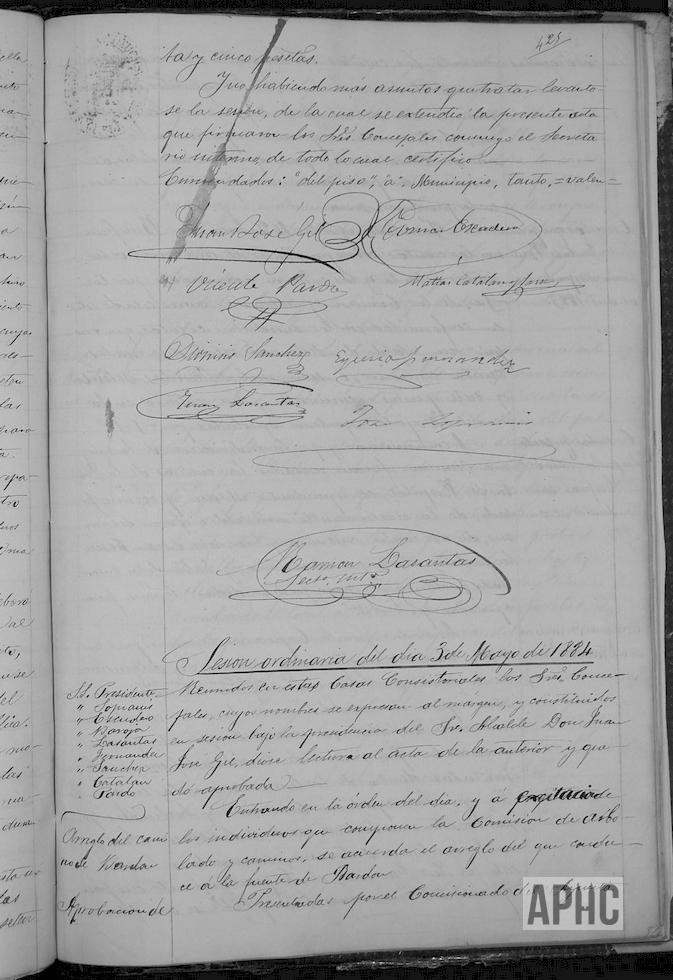 425
ta y cinco pesetas.
Y no habiendo mas asuntos que tratar levanto-
se la sesion, de la cual se extendió la presente acta
que firmaron los Sres. Concejales conmigo el Secreta
rio interino, de todo lo cual, certifico.
Enmendados: "del piso", "á", Municipio, tanto, = valen =
Juan José Gil
Tomas Escudero
Vicente Pardo
Matias Catalan y
Dionisio Sanchez
Eugenio Fernandez
Juan Lasantas
José Sopranis
Ramon Lasantas
Secro. Intº
Sesion ordinaria del dia 3 de Mayo de 1884
S.S. Presidente
" Sopranis
" Escudero
" Baroja
" Lasantas
" Fernandez
" Sanchez
" Catalan
" Pardo
Reunidos en estas Casas Consistoriales los Sres. Conce-
jales, cuyos nombres se expresan al margen, y constituidos
en sesion bajo la presidencia del Sr. Alcalde Don Juan
José Gil, diose lectura al acta de la anterior y que
dó aprobada.
Entrando en la órden del dia, y á excitacion de
los individuos que componen la Comision de arbo-
lado y caminos, se acuerda el arreglo del que condu-
ce á la fuente de Bardon
Arreglo del cami
no de Bardon
Presentadas por el Comisionado de
Aprobacion de
APHC